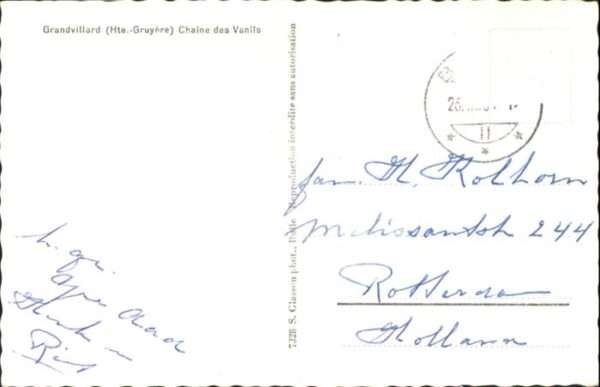 Grandvillard (Hte.-Gruyère) Chaîne des Vanils
7328 S. Glasson phot., Bulle Reproduction interdite sans autorisation
26.
II
fam. H. Kolhorn
Melissantstr 244
Rotterdam
Holland
h. gr.
Henk
Riet